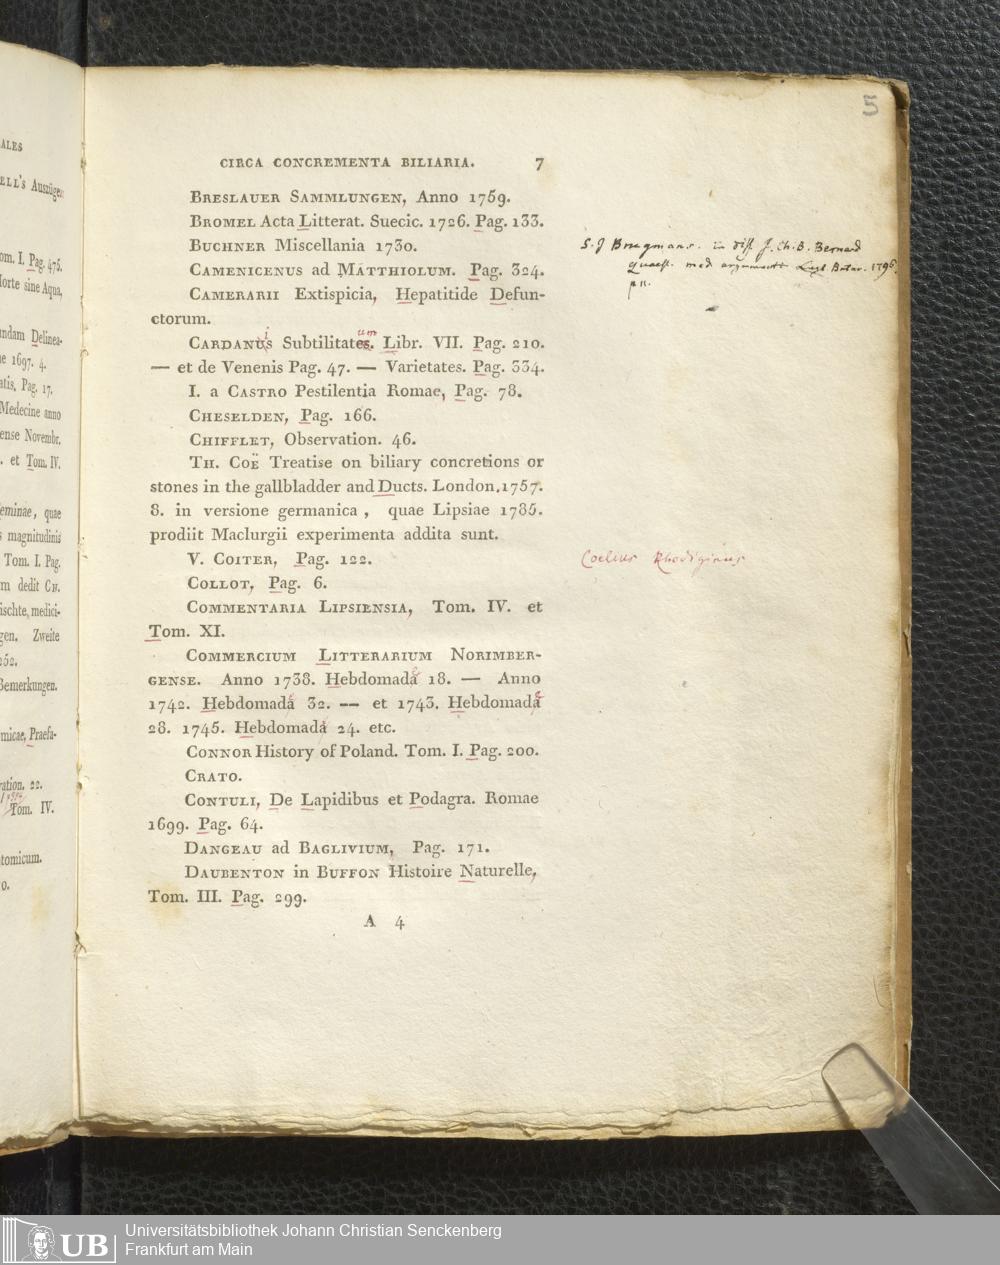 ALES
ELL's Auszüge
om. I. Pag. 475.
Morte sine Aqua,
undam Delinea-
ne 1697. 4.
atis, Pag. 17.
Medecine anno
ense Novembr.
. et Tom. IV.
eminae, quae
s magnitudinis
Tom. I. Pag.
m dedit CH.
ischte, medici-
gen. Zweite
252.
Bemerkungen.
micae, Praefa-
ation. 22.
Tom. IV.
tomicum.
o.
5
CIRCA CONCREMENTA BILIARIA. 7
BRESLAUER SAMMLUNGEN, Anno 1759.
BROMEL Acta Litterat. Suecic. 1726. Pag. 133.
BUCHNER Miscellania 1730.
CAMENICENUS ad MATTHIOLUM. Pag. 324.
CAMERARII Extispicia, Hepatitide Defun-
ctorum.
CARDANUS Subtilitates. Libr. VII. Pag. 210.
— et de Venenis Pag. 47. — Varietates. Pag. 334.
I. a CASTRO Pestilentia Romae, Pag. 78.
CHESELDEN, Pag. 166.
CHIFFLET, Observation. 46.
TH. COË Treatise on biliary concretions or
stones in the gallbladder and Ducts. London. 1757.
8. in versione germanica, quae Lipsiae 1785.
prodiit Maclurgii experimenta addita sunt.
V. COITER, Pag. 122.
COLLOT, Pag. 6.
COMMENTARIA LIPSIENSIA, Tom. IV. et
Tom. XI.
COMMERCIUM LITTERARIUM NORIMBER-
GENSE. Anno 1738. Hebdomada 18. — Anno
1742. Hebdomada 32. — et 1743. Hebdomada
28. 1745. Hebdomada 24. etc.
CONNOR History of Poland. Tom. I. Pag. 200.
CRATO.
CONTULI, De Lapidibus et Podagra. Romae
1699. Pag. 64.
DANGEAU ad BAGLIVIUM, Pag. 171.
DAUBENTON in BUFFON Histoire Naturelle,
Tom. III. Pag. 299.
A 4
S. J Brugmans. in diss. J. Ch. B. Bernard
quaest. med argumenti Lugd. Batav. 1796.
p 11.
Coelius Rhodiginus
UB
Universitätsbibliothek Johann Christian Senckenberg
Frankfurt am Main